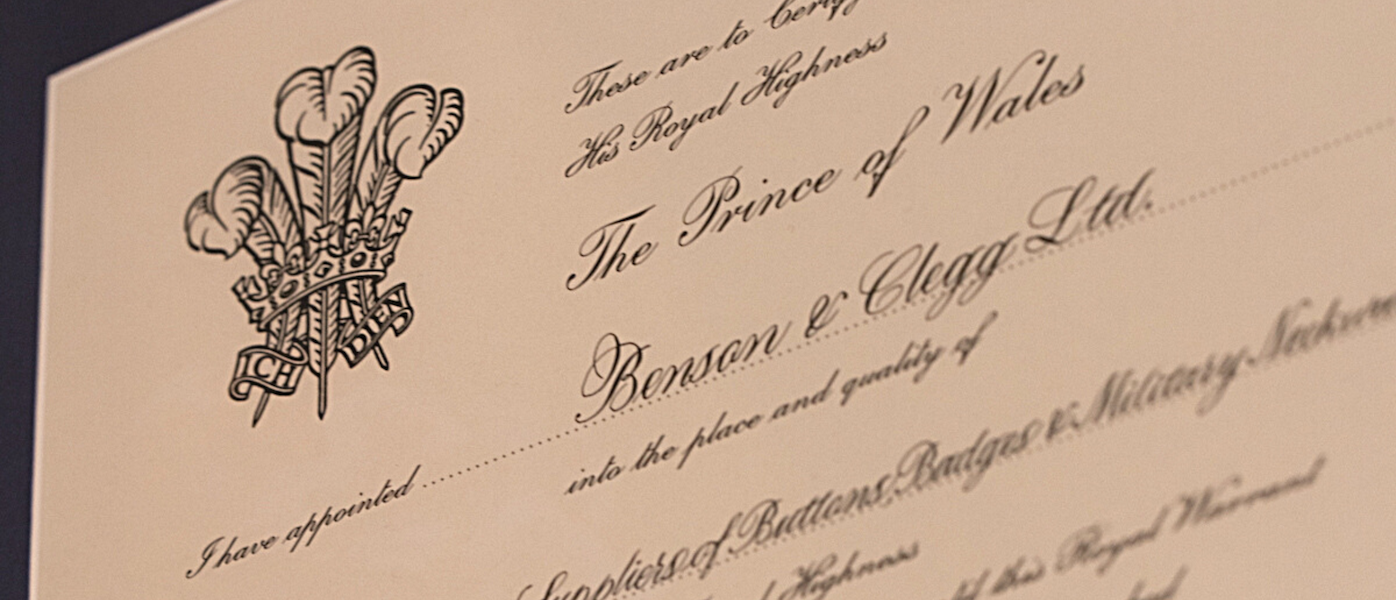 ICH DIEN
These are to Certify
His Royal Highness
The Prince of Wales
I have appointed Benson & Clegg Ltd.
into the place and quality of
Suppliers of Buttons, Badges & Military
Highness
this Royal Warrant